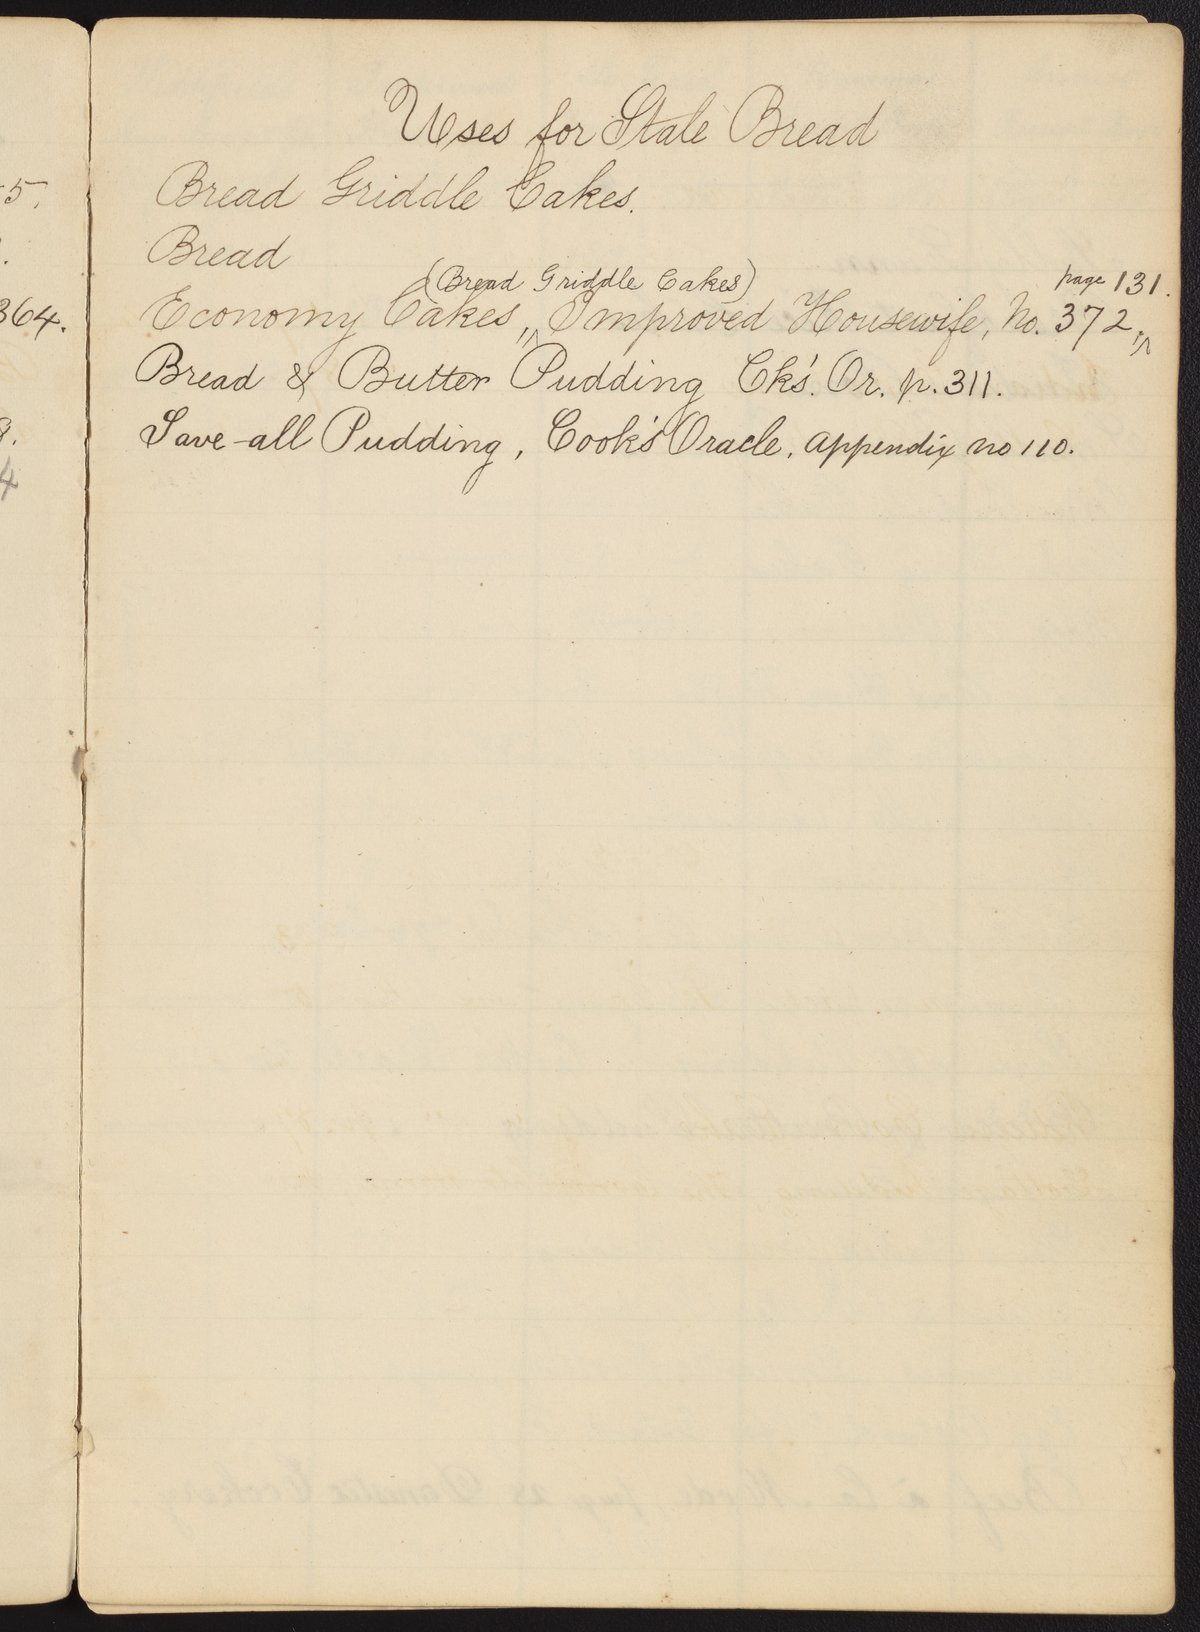 5.
364.
4
Uses for Stale Bread
Bread Griddle Cakes.
Bread
(Bread Griddle Cakes) page 131.
Economy Cakes, Improved Housewife, No. 372,
Bread & Butter Pudding Ck's. Or. p. 311.
Save-all Pudding, Cook's Oracle, appendix no 110.